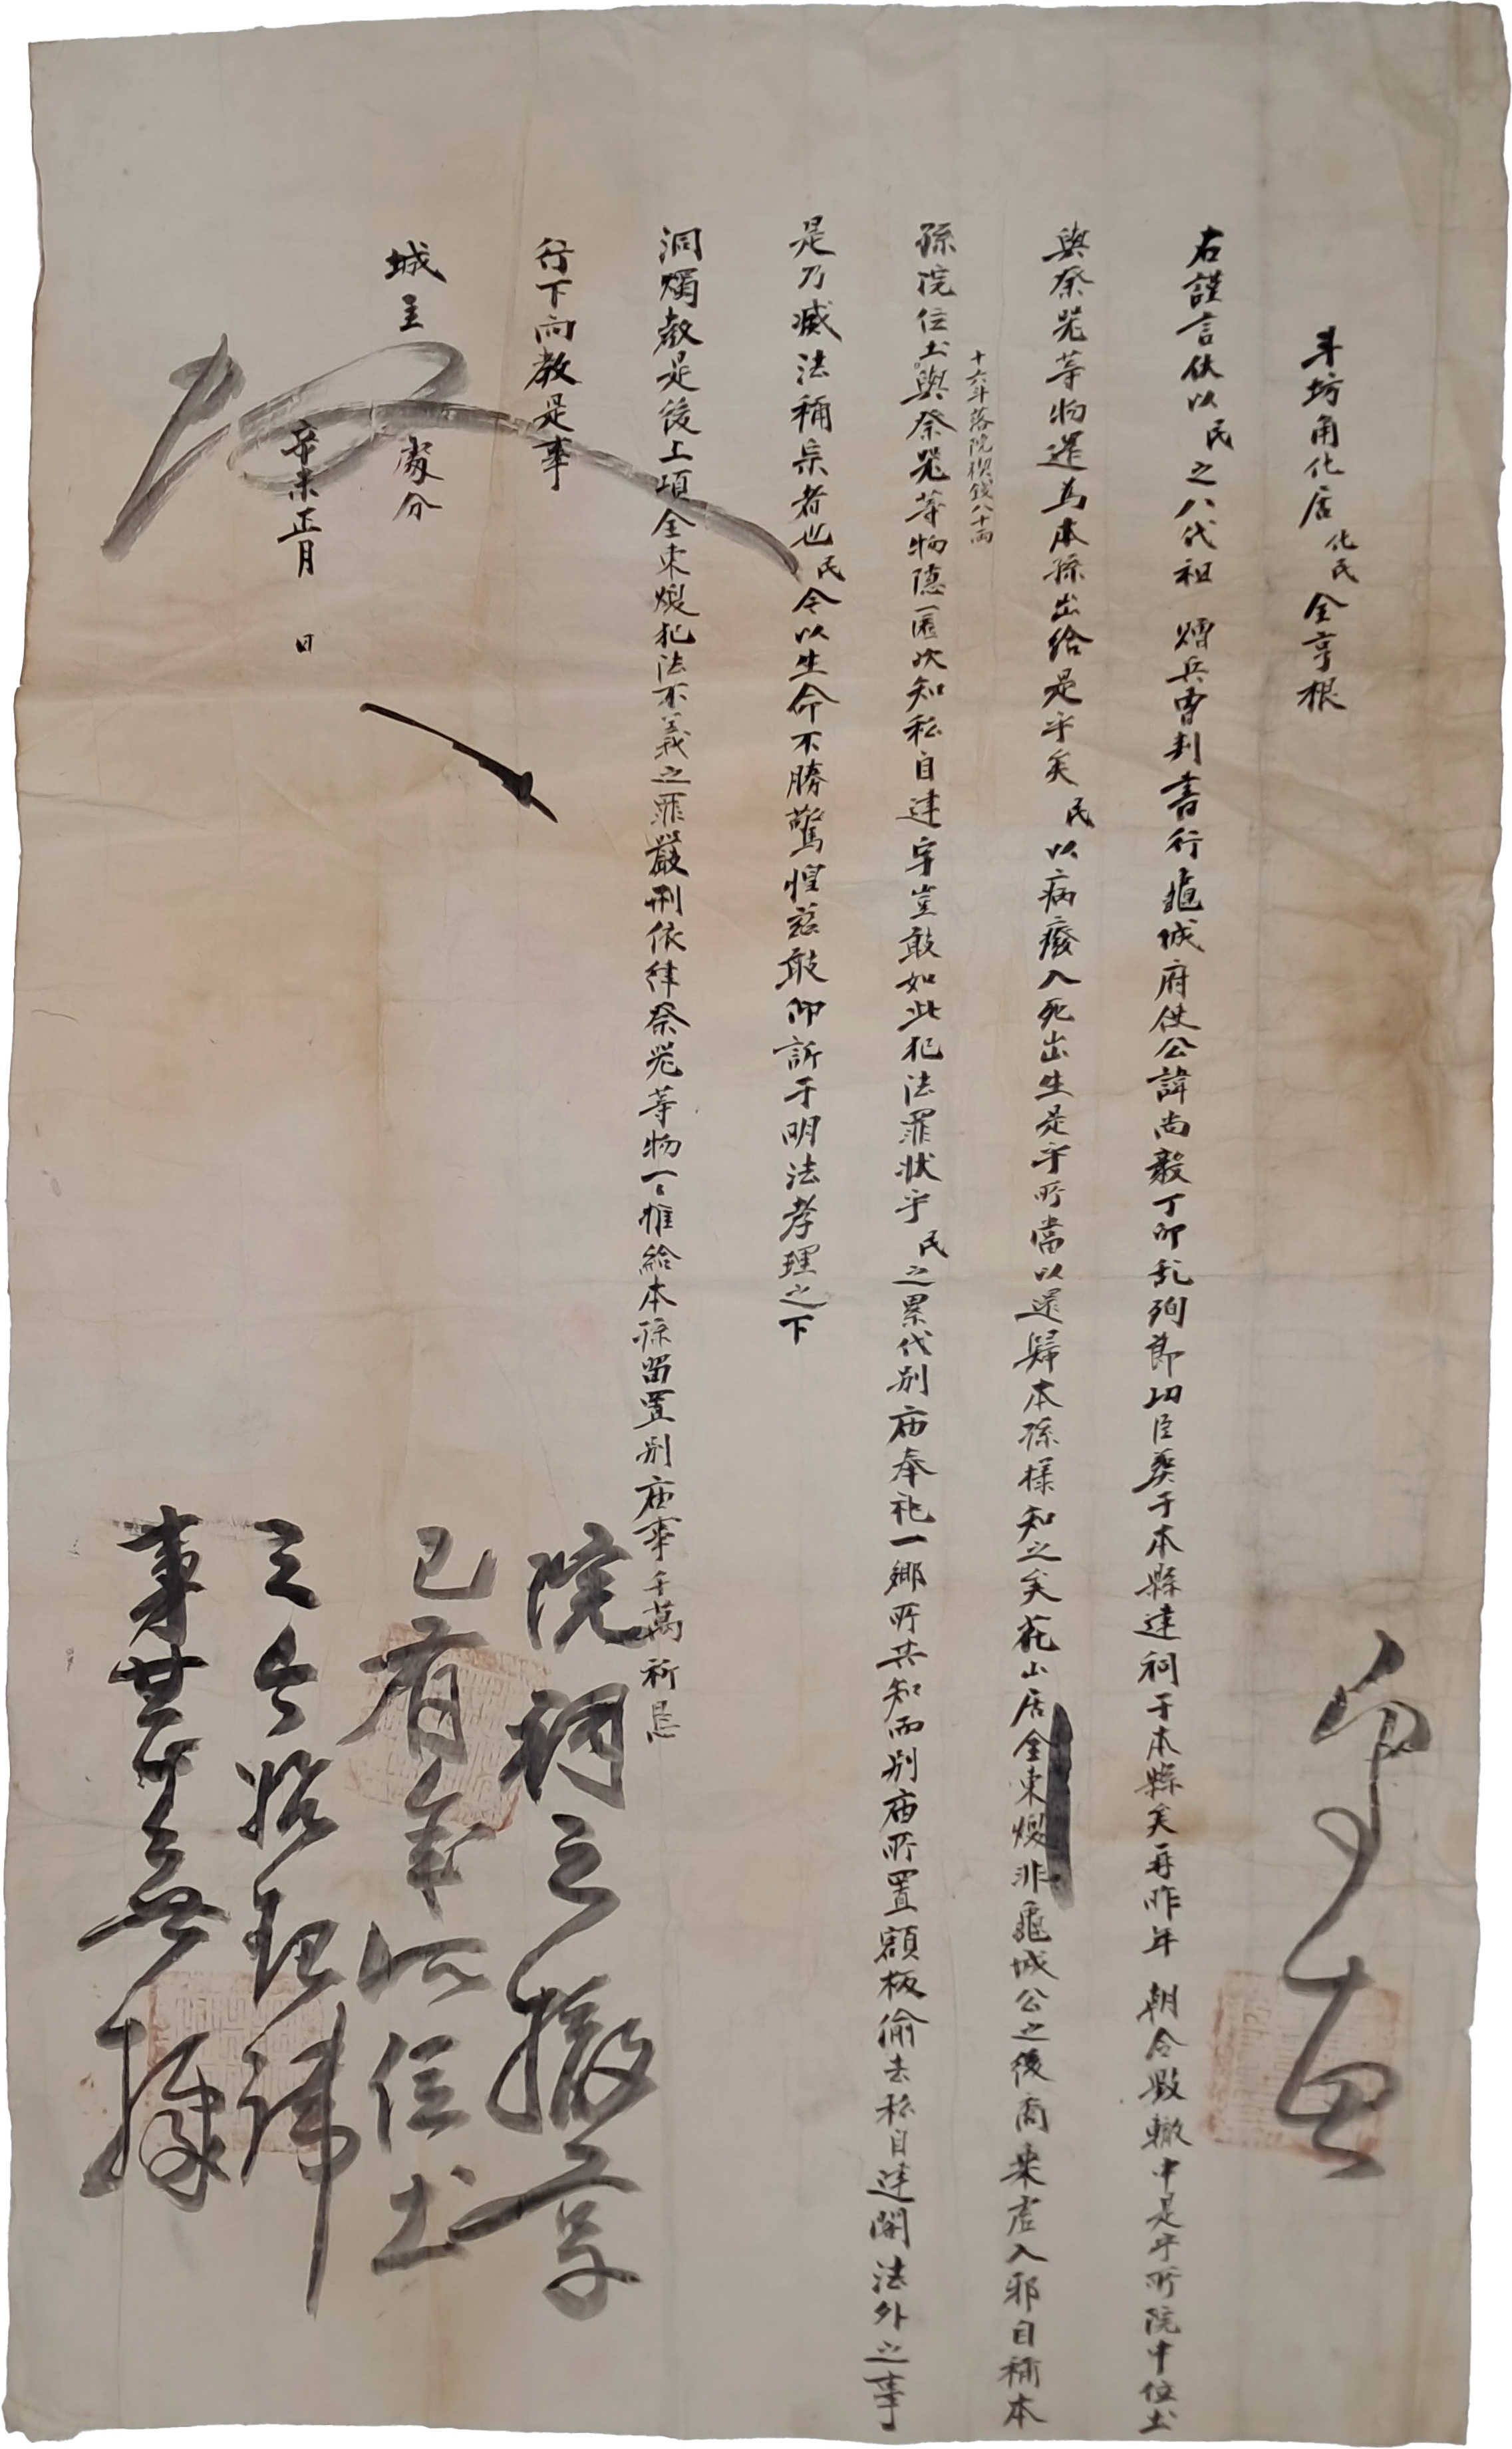 斗坊角化居化民全亨根
右謹言伏以民之八代祖 贈兵曹判書行龜城府使公諱尚毅丁卯乱殉節功臣葬于本縣建祠于本縣矣再昨年 朝令毁轍中是乎所院中位土
與祭器等物還為本孫出給是乎矣民以病癈入死出生是乎所當以還歸本孫樣知之矣花山居全東煥非龜城公之後裔来虗入邪自稱本
十六年落院稧錢八十兩
孫院位土與祭器等物隱匿次知私自建宇豈敢如此犯法罪状乎民之累代别庙奉祀一鄉所共知而别庙所置額板偷去私自建開法外之事
是乃滅法稱宗者也民令以生命不勝驚惶玆敢仰訴于明法孝理之下
洞燭教是後上項全東煥犯法不義之罪嚴刑依律祭器等物一〻推給本孫留置别庙事千萬祈恳
行下向教是事
城主 處分
辛未正月 日
院祠之撤享
已有年所位土
之今始現譁
事甚無據